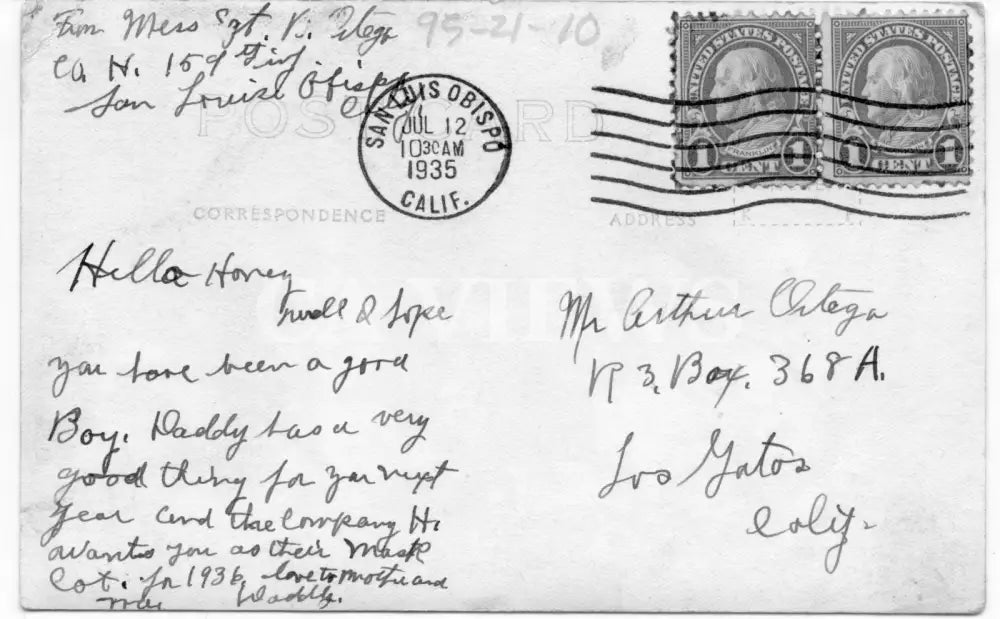 From Mess Sgt. V. Ortega
Co. H. 159th Inf.
San Louise Obispo
Calif
95-21-10
POST CARD
SAN LUIS OBISPO
JUL 12
10 30 AM
1935
CALIF.
UNITED STATES POSTAGE
FRANKLIN
1 CENT 1
UNITED STATES POSTAGE
FRANKLIN
1 CENT 1
CORRESPONDENCE
ADDRESS
Hello Honey
Well I hope
you have been a good
Boy. Daddy has a very
good thing for you next
year and the Company H.
wants you as their Mask
Cot. for 1936 love to mother and
Daddy.
Mr Arthur Ortega
R 3. Box. 368 A.
Los Gatos
Calif.